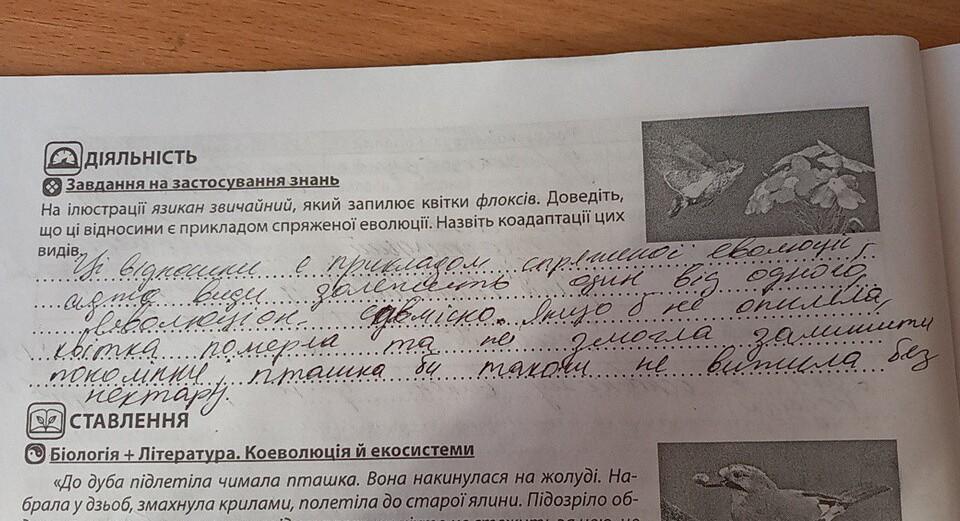 ДІЯЛЬНІСТЬ
Завдання на застосування знань
На ілюстрації язикан звичайний, який запилює квітки флоксів. Доведіть,
що ці відносини є прикладом спряженої еволюції. Назвіть коадаптації цих
видів.
Ці відносини є прикладом спряженої еволюції,
види залежать один від одного,
Якщо б не опиляла,
квітка померла та не змогла залишити
пташка би також не вижила без
нектару.
СТАВЛЕННЯ
Біологія + Література. Коеволюція й екосистеми
«До дуба підлетіла чимала пташка. Вона накинулася на жолуді. На-
брала у дзьоб, змахнула крилами, полетіла до старої ялини. Підозріло об-